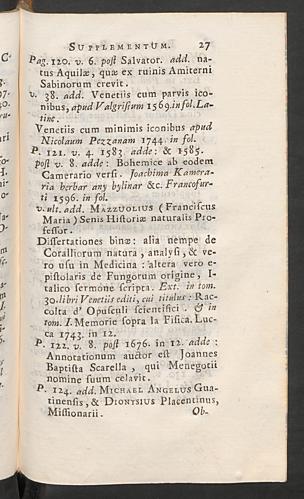 SUPPLEMENTUM. 27
Pag. 120. v. 6. post Salvator. add. na-
tus Aquilæ, quæ ex ruinis Amiterni
Sabinorum crevit.
v. 38. add. Venetiis cum parvis ico-
nibus, apud Valgrisium 1569. in fol. La-
tine.
Venetiis cum minimis iconibus apud
Nicolaum Pezzanam 1744. in fol.
P. 121. v. 4. 1583. adde: & 1585.
post v. 8. adde: Bohemice ab eodem
Camerario versi. Joachima Kamera-
ria herbar any bylinar &c. Francofur-
ti 1596. in fol.
v. ult. add. MAZZUOLIUS (Franciscus
Maria) Senis Historiæ naturalis Pro-
fessor.
Dissertationes binæ: alia nempe de
Coralliorum natura, analysi, & ve-
ro usu in Medicina: altera vero e-
pistolaris de Fungorum origine, I-
talico sermone scripta. Ext. in tom.
30. libri Venetiis editi, cui titulus: Rac-
colta d' Opusculi scientifici. & in
tom. I. Memorie sopra la Fisica. Luc-
ca 1743. in 12.
P. 122. v. 8. post 1676. in 12. adde:
Annotationum auctor est Joannes
Baptista Scarella, qui Menegotii
nomine suum celavit.
P. 124. add. MICHAEL ANGELUS Gua-
tinensis, & DIONYSIUS Placentinus,
Missionarii.
Ob-